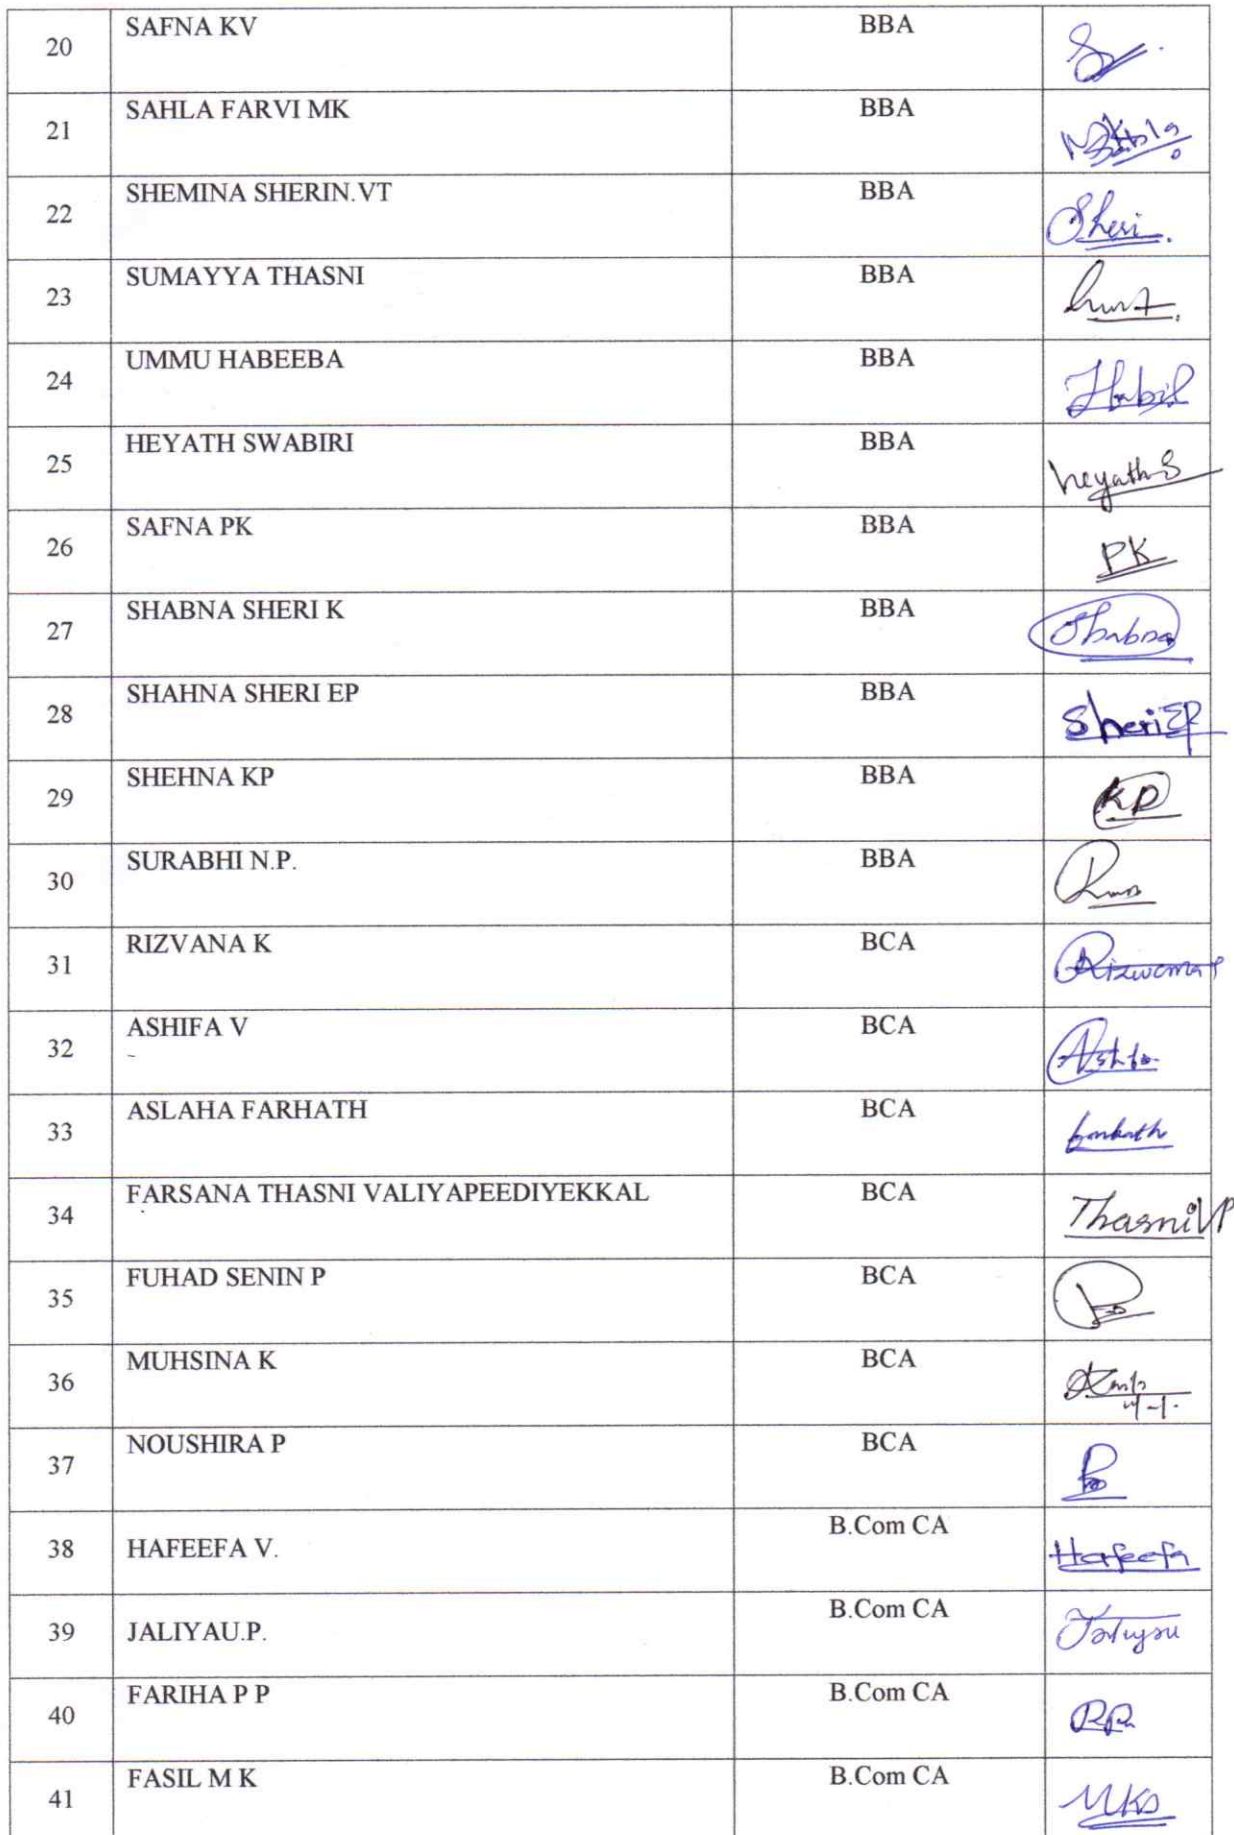 20 SAFNA KV BBA
21 SAHLA FARVI MK BBA
22 SHEMINA SHERIN.VT BBA Sheri.
23 SUMAYYA THASNI BBA
24 UMMU HABEEBA BBA
25 HEYATH SWABIRI BBA heyath S
26 SAFNA PK BBA PK
27 SHABNA SHERI K BBA Shabna
28 SHAHNA SHERI EP BBA Sheri EP
29 SHEHNA KP BBA KP
30 SURABHI N.P. BBA
31 RIZVANA K BCA
32 ASHIFA V BCA
33 ASLAHA FARHATH BCA
34 FARSANA THASNI VALIYAPEEDIYEKKAL BCA Thasni VP
35 FUHAD SENIN P BCA
36 MUHSINA K BCA
37 NOUSHIRA P BCA
38 HAFEEFA V. B.Com CA Hafeefa
39 JALIYAU.P. B.Com CA
40 FARIHA P P B.Com CA
41 FASIL M K B.Com CA